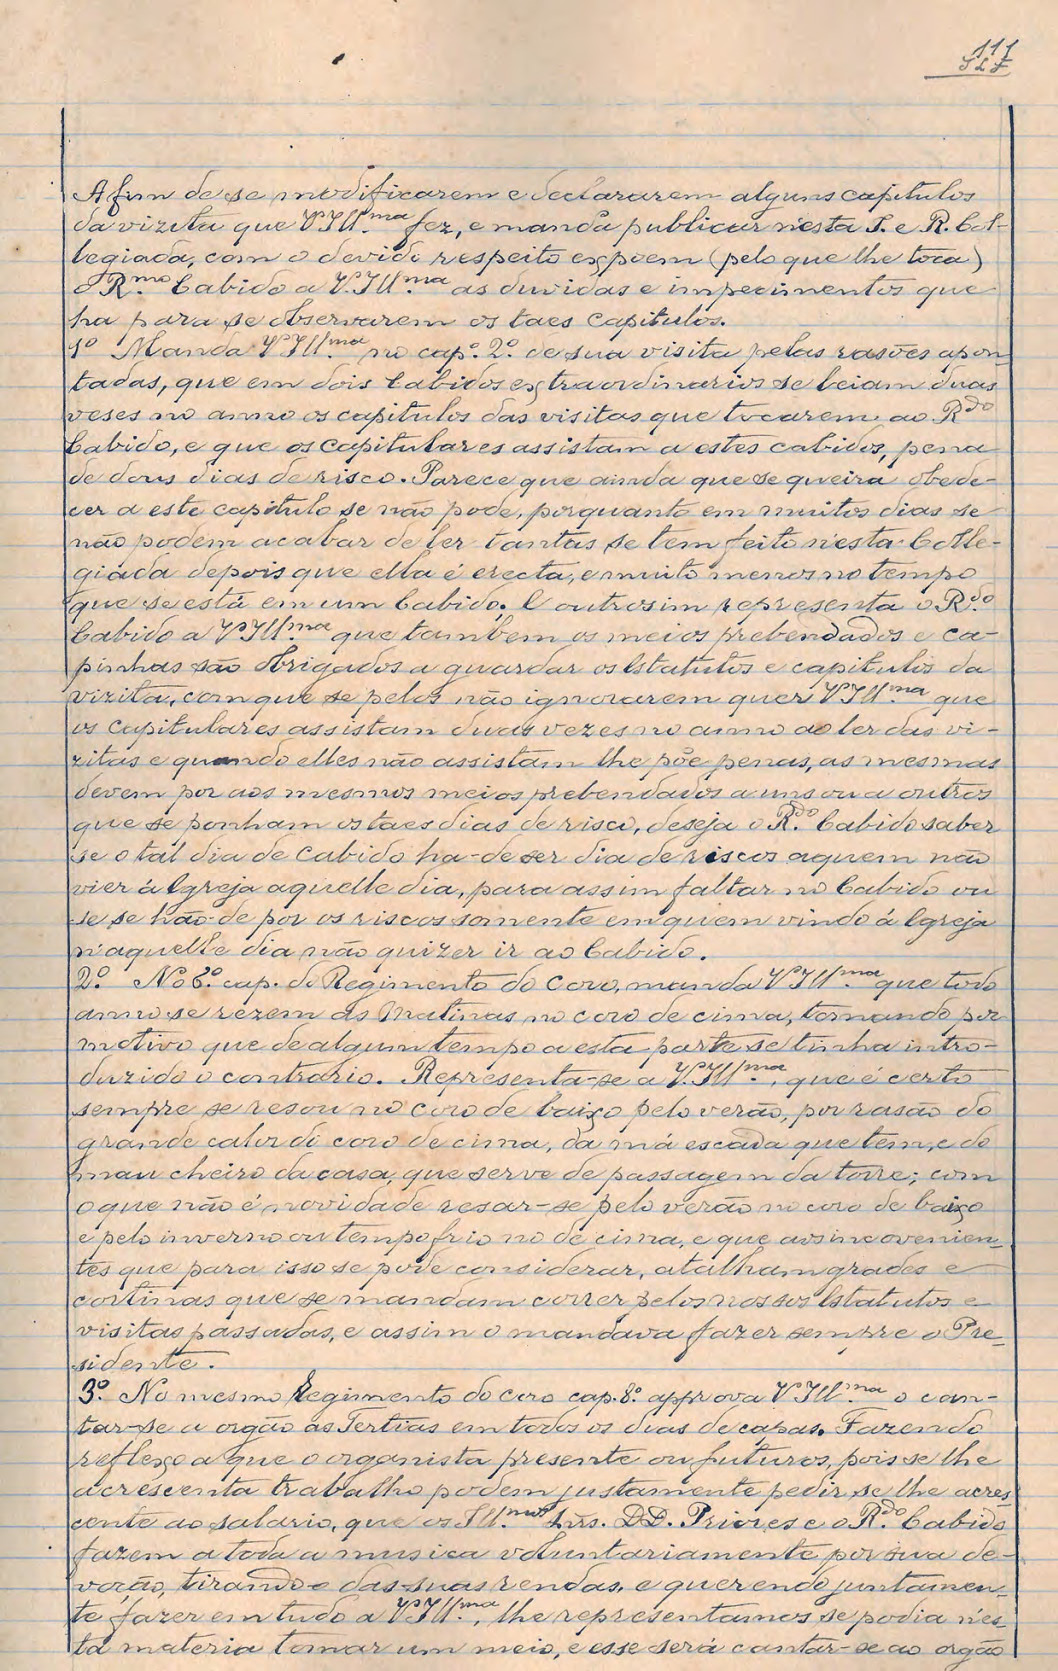 111
Afim de se modificarem e declararem alguns capitulos
da vizita que V Ill.ma fez, e manda publicar n'esta I. e R. Col-
legiada, com o devido respeito expoem (pelo que lhe toca)
o R.mo Cabido a V. Ill.ma as duvidas e impedimentos que
ha para se observarem os taes capitulos.
1º Manda V Ill.ma no cap.º 2.º de sua visita pelas rasões apon
tadas, que em dois Cabidos extraordinarios se leiam duas
veses no anno os capitulos das visitas que tocarem ao R.do
Cabido, e que os capitulares assistam a estes cabidos, pena
de dous dias de risco. Parece que ainda que se queira obede-
cer a este capitulo se não pode, porquanto em muitos dias se
não podem acabar de ler tantas se tem feito n'esta Colle-
giada depois que ella é erecta, e muito menos no tempo
que se está em um Cabido. E outrosim representa o R.do
Cabido a V Ill.ma que tambem os meios prebendados e ca-
pinhas são obrigados a guardar os Estatutos e capitulos da
vizita, com que se pelos não ignorarem quer V Ill.ma que
os capitulares assistam duas vezes no anno ao ler das vi-
zitas e quando elles não assistam lhe põe penas, as mesmas
devem por aos mesmos meios prebendados a uns ou a outros
que se ponham os taes dias de risco, deseja o R.do Cabido saber
se o tal dia de Cabido ha-de ser dia de riscos aquem não
vier á Igreja aquelle dia, para assim faltar no Cabido ou
se se hão-de por os riscos somente em quem vindo á Igreja
n'aquelle dia não quizer ir ao Cabido.
2.º No 6.º cap. do Regimento do Coro, manda V Ill.ma que todo
anno se rezem as Matinas no coro de cima, tomando por
motivo que de algum tempo a esta parte se tinha intro-
duzido o contrario. Representa-se a V. Ill.ma, que é certo
sempre se resou no coro de baixo pelo verão, por rasão do
grande calor do coro de cima, da má escada que tem, e do
mau cheiro da casa, que serve de passagem da torre; com
o que não é novidade resar-se pelo verão no coro de baixo
e pelo inverno ou tempo frio no de cima, e que aos incovenien-
tes que para isso se pode considerar, atalham grades e
cortinas que se mandam correr pelos nossos Estatutos e
visitas passadas, e assim o mandava fazer sempre o Pre-
sidente.
3.º No mesmo Regimento do coro cap. 8.º approva V Ill.ma o can-
tar-se a orgão as Tertias em todos os dias de capas. Fazendo
reflexo a que o organista presente ou futuros, pois se lhe
acrescenta trabalho podem justamente pedir se lhe acres
cente ao salario, que os Ill.mos Snrs. DD. Priores e o R.do Cabido
fazem a toda a musica voluntariamente por sua de-
voção, tirando-o das suas rendas, e querendo juntamen-
te fazer em tudo a V Ill.ma, lhe representamos se podia n'es-
ta materia tomar um meio, e esse será cantar-se ao orgão